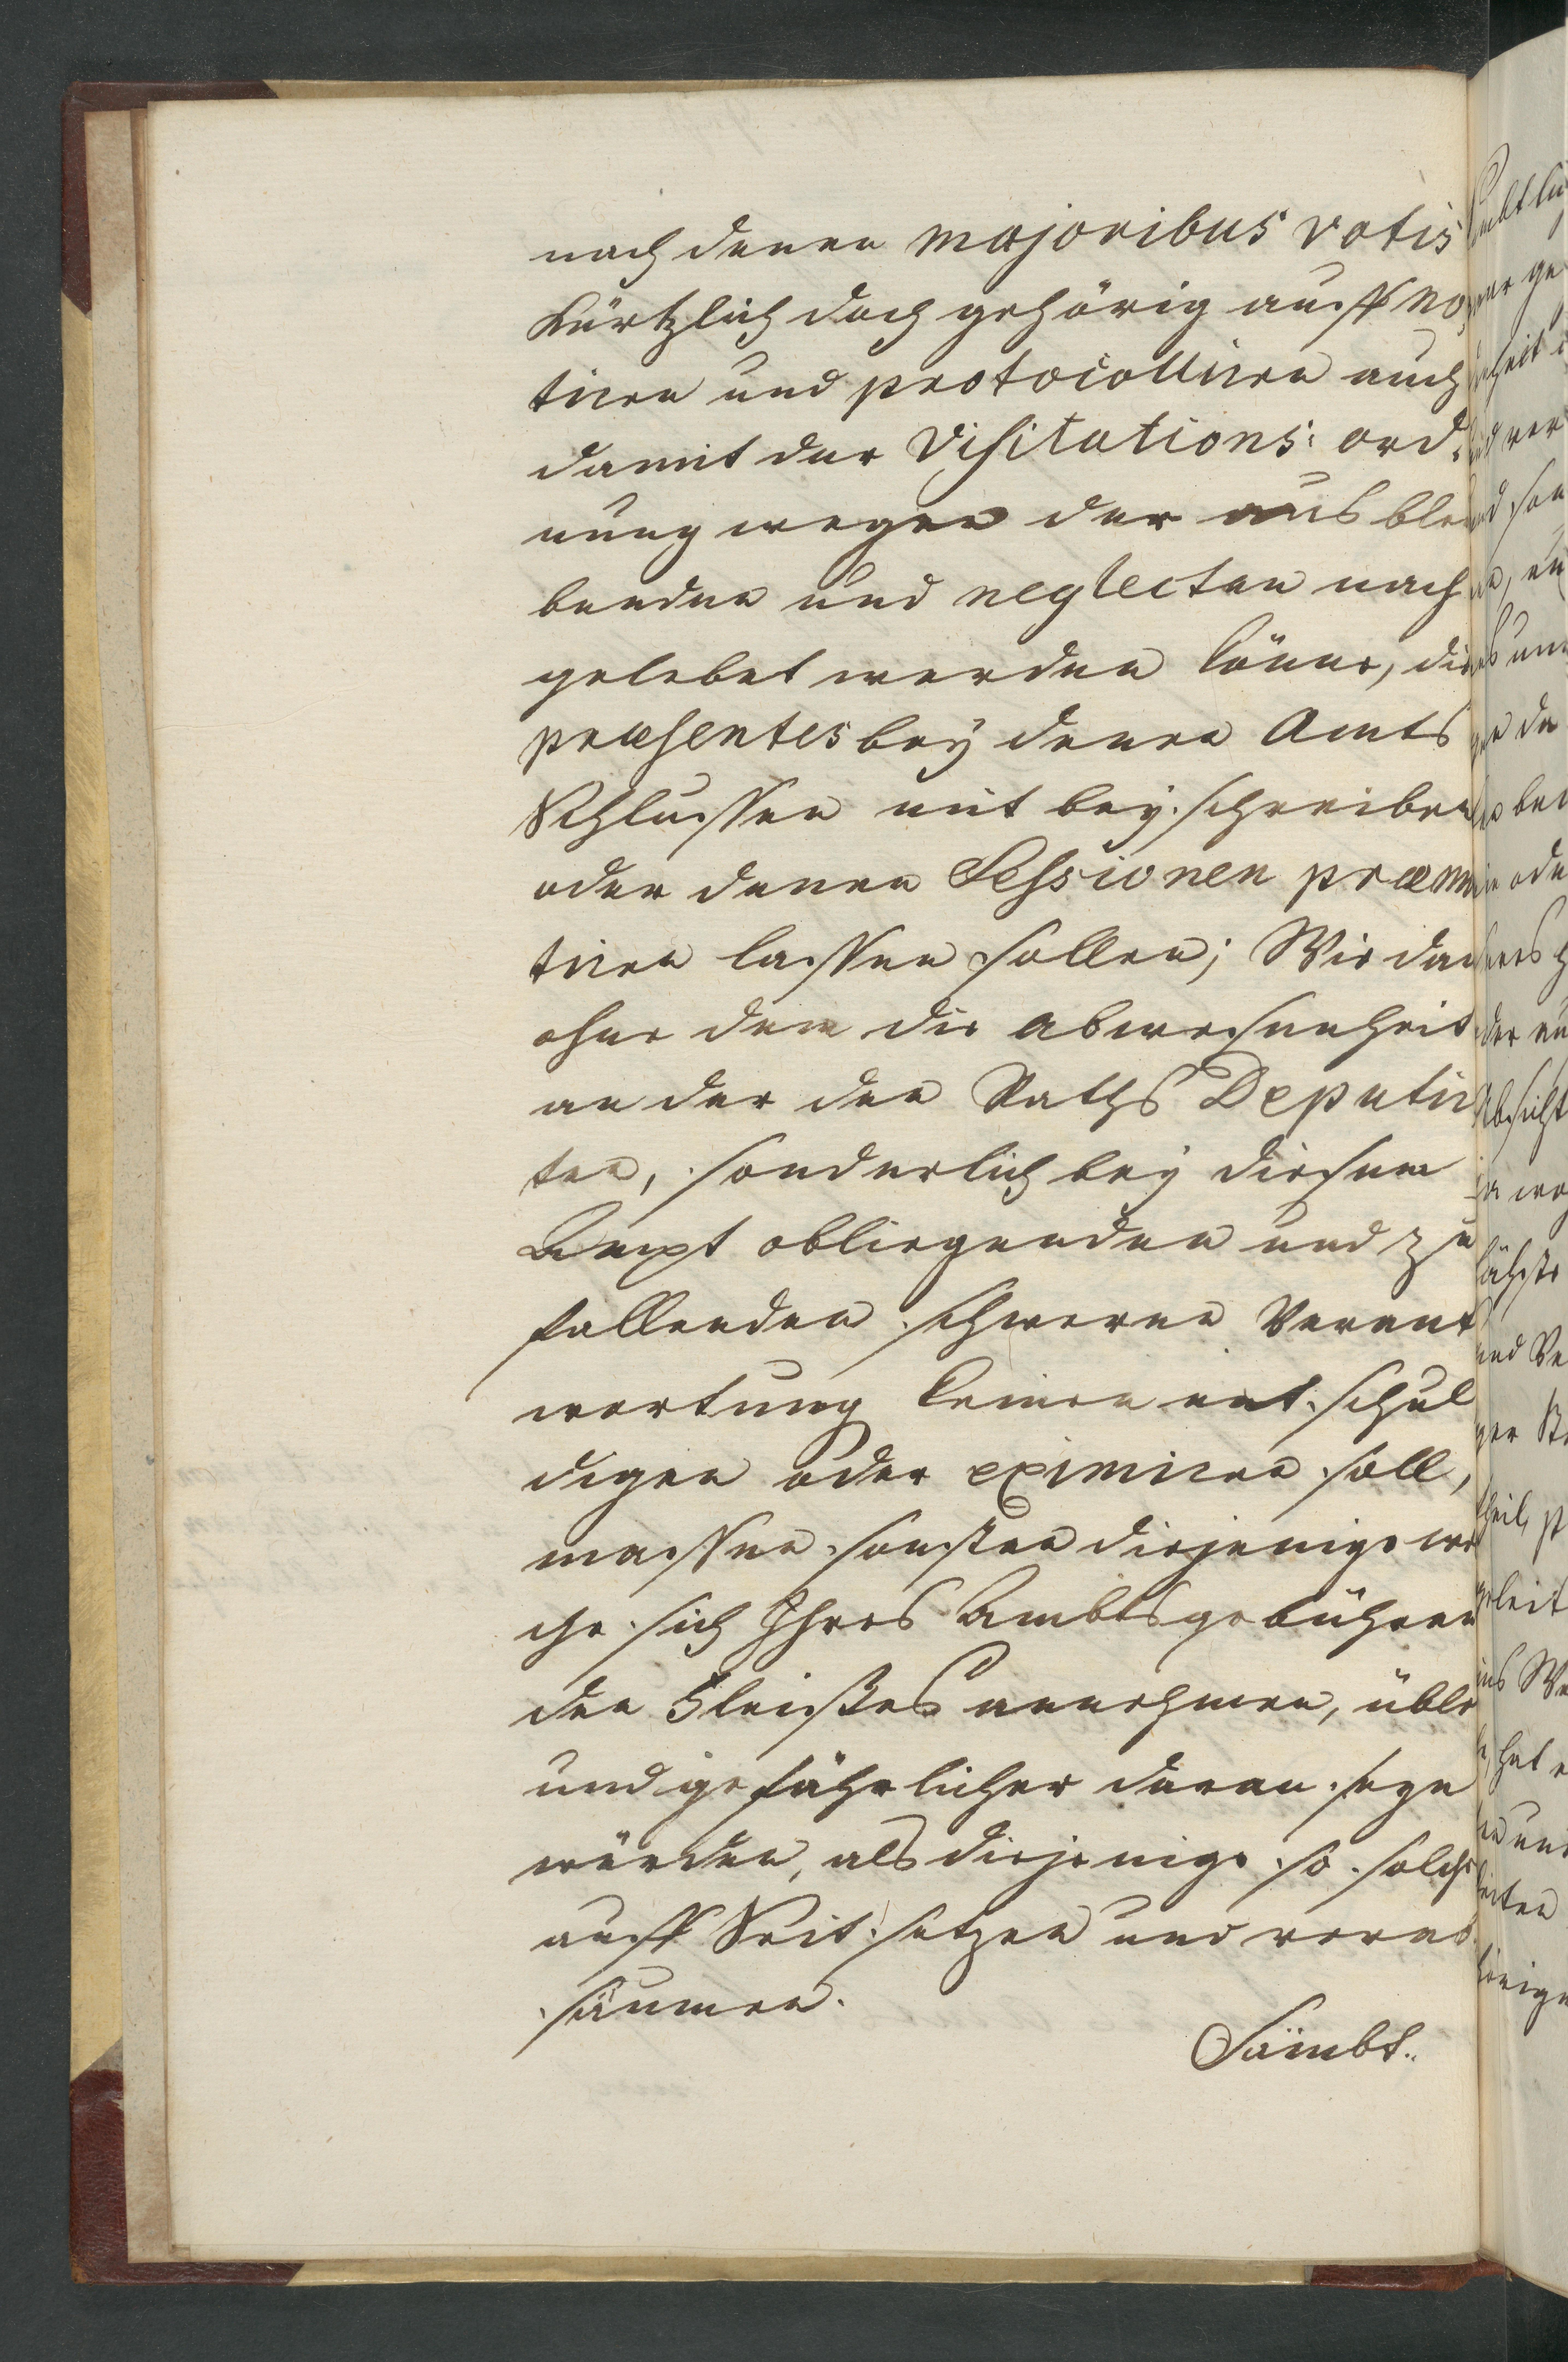 nach denen majoribus votis
kürtzlich doch gehörig auff no,
tiren und protocolliren auch
damit der Visitations: ord:
nung wegen der aus blei
benden und neglecten nach
gelebet werden könne, die
præsentes bey denen Amts
Schlussen mit bey schreiben
oder denen Sessionen præmit
tiren lassen sollen; Wie dan
ohne dem die abwesenheit
an der den Raths Deputir
ten, sonderlich bey diesem
Ampt obliegenden und zu
fallenden schweren Verant
wortung keinen entschul
digen oder eximiren soll,
massen sonsten diejenige wel
che sich Ihres Ambts gebühren
den Fleißes annehmen, übler
und gefährlicher daran seyn
würden, als diejenige so solche
auff Seit setzen und verab
säumen.
Sämbt: